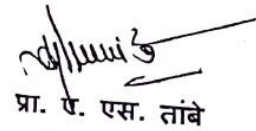 प्रा. ऐ. एस. तांबे